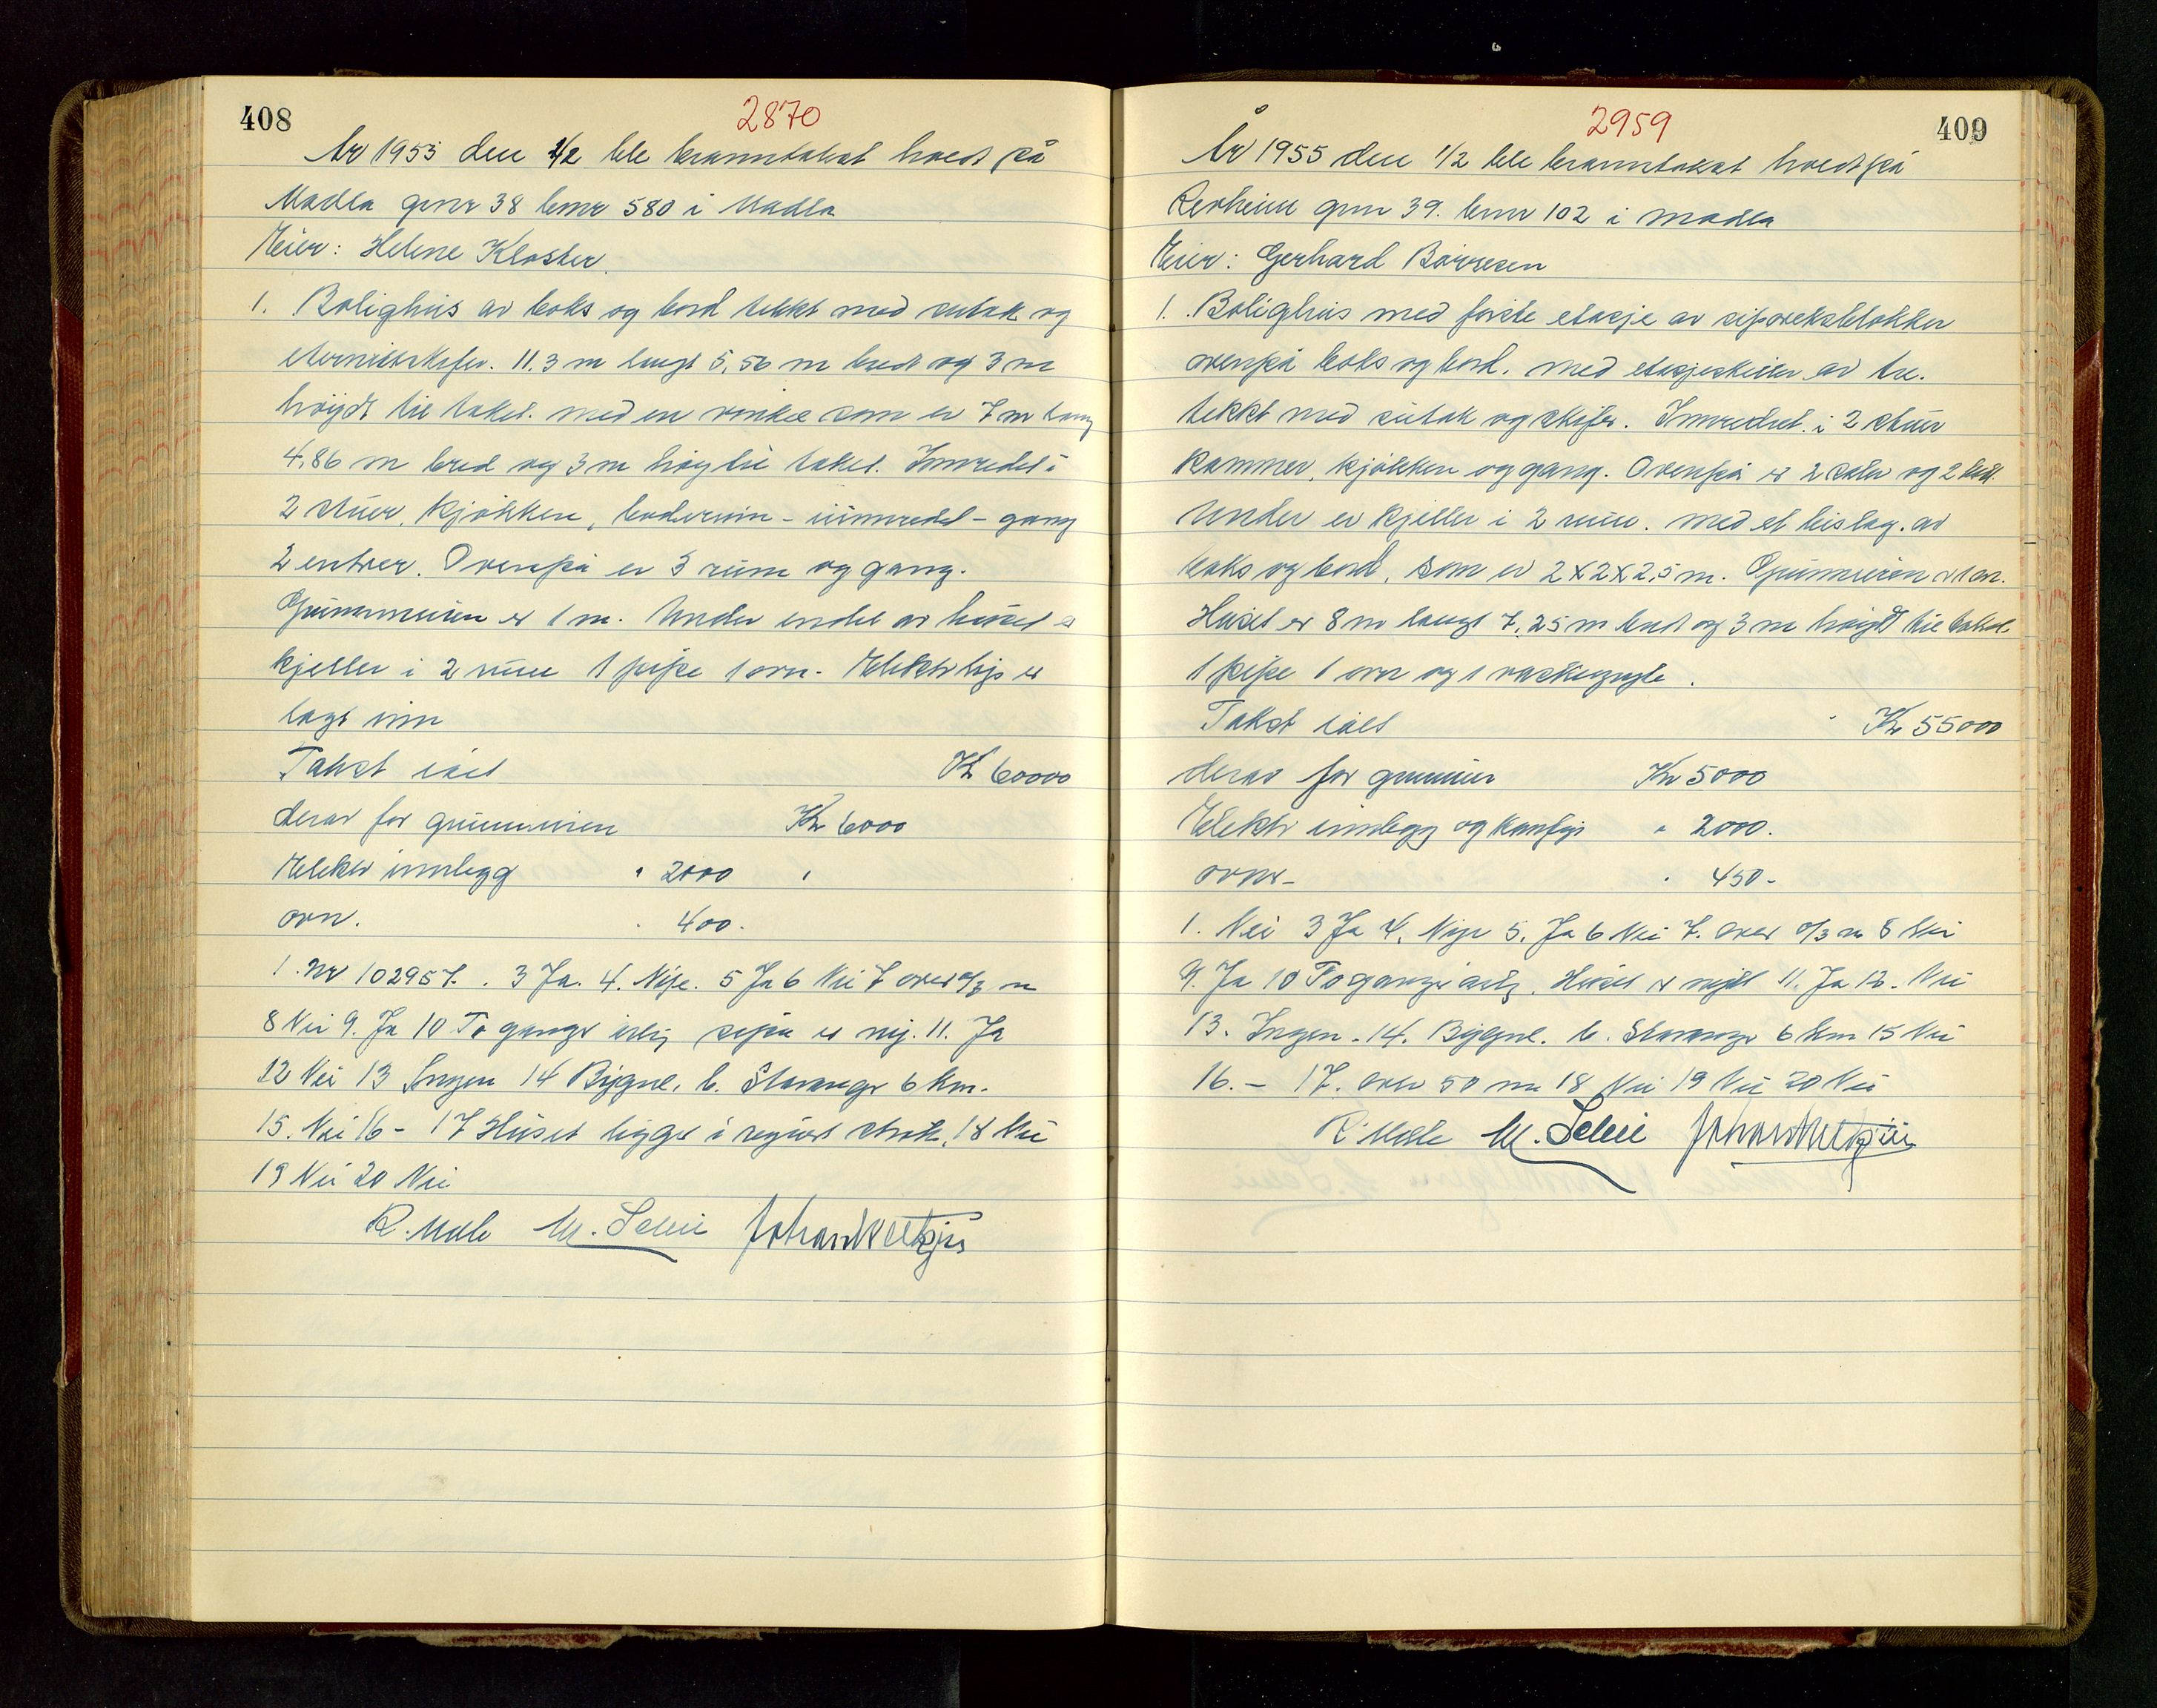 408
2870
År 1955 den 1/2 ble branntakst holdt på
Madla gnr 38 bnr 580 i Madla
Eier: Helene Kloster.
1. Bolighus av boks og bord tekket med sutak og
eternitskifer. 11.3 m langt 5,56 m bredt og 3 m
høydt til taket. med en vinkel som er 7 m lang
4,86 m bred og 3 m høy til taket. Innredet i
2 stuer, kjøkken, baderum - uinnredet - gang
2 entreer. Ovenpå er 3 rum og gang.
Grunnmuren er 1 m. Under endel av huset er
kjeller i 2 rum 1 pipe 1 ovn. Elektr lys er
lagt inn
Takst ialt Kr 60000
derav for grunnmuren Kr 6000
Elektr innlegg " 2000 "
ovn. " 400.
1. Nr 102957. 3 Ja. 4. Nye. 5 Ja 6 Nei 7 over 2/3 m
8 Nei 9. Ja 10 To ganger årlig pipa er ny. 11. Ja
12 Nei 13 Ingen 14 Bygnl. b. Stavanger 6 km.
15. Nei 16 - 17 Huset ligger i regulert strøk. 18 Nei
19 Nei 20 Nei
R. Mele M. Selvi Johan Meltzjir
409
2959
År 1955 den 1/2 ble branntakst holdt på
Revheim gnr 39. bnr 102 i Madla
Eier: Gerhard Børresen
1. Bolighus med første etasje av siporeksblokker
ovenpå boks og bord. med etasjeskiller av tre.
tekkt med sutak og skifer. Innredet i 2 stuer
kammer, kjøkken og gang. Ovenpå er 2 saler og 2 kott.
Under er kjeller i 2 rum. med et bislag. av
boks og bord, som er 2 x 2 x 2,5 m. Grunnmuren er 1 m.
Huset er 8 m langt 7,25 m bredt og 3 m høydt til taket.
1 pipe 1 ovn og 1 vaskegryte.
Takst ialt Kr 55000
derav for grunnmur Kr 5000
Elektr innlegg og komfyr " 2000.
ovner - " 450 -
1. Nei 3 Ja 4. Nye 5. Ja 6 Nei 7. Over 2/3 m 8 Nei
9. Ja 10 To ganger årlig. Huset er nytt 11. Ja 12. Nei
13. Ingen. 14. Bygnl. b. Stavanger 6 km 15 Nei
16. - 17. over 50 m 18 Nei 19 Nei 20 Nei
R. Mele M. Selvi Johan Meltzjir